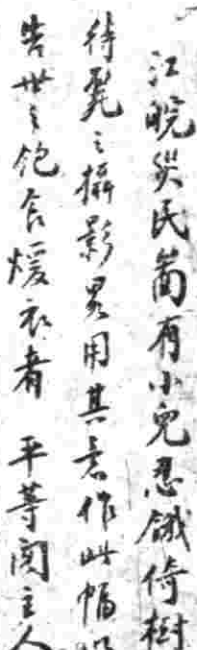 江皖災民啚有小兒忍饑倚樹
待斃之攝影畧用其意作此幅
告世之飽食煖衣者 平等閣主人